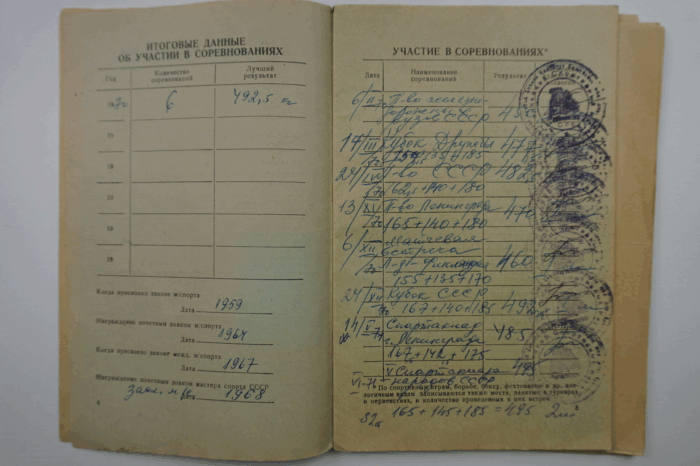 ИТОГОВЫЕ ДАННЫЕ
ОБ УЧАСТИИ В СОРЕВНОВАНИЯХ
Год
Количество соревнований
Лучший результат
1970
6
492,5 кг
19
19
19
19
19
19
Когда присвоено звание м/спорта
Дата 1959
Награждение почетным знаком м/спорта
Дата 1964
Когда присвоено звание межд. м/спорта
Дата 1967
Награждение почетным знаком мастера спорта СССР
Дата 1968
4
УЧАСТИЕ В СОРЕВНОВАНИЯХ*
Дата
Наименование соревнований
Результат
6/II
П-во
СССР
14/III Кубок Дружбы 475
155+135+185
П-во СССР 482,5
162,5+140+180
13/XI П-во Ленинграда 470
165+140+180
6/XII Матчевая
встреча 460
Л-д - Финляндия
155+135+170
24/XII Кубок СССР
167+140+185
14/V Спартакиада 485
г. Ленинграда
167+142+175
V Спартакиада 495
VI-71 народов СССР
* По спортивным играм, борьбе, боксу, фехтованию и др. аналогичным видам записываются также места, занятые в турнирах и первенствах, и количество проведенных в них встреч.
165+145+185=495 2
5